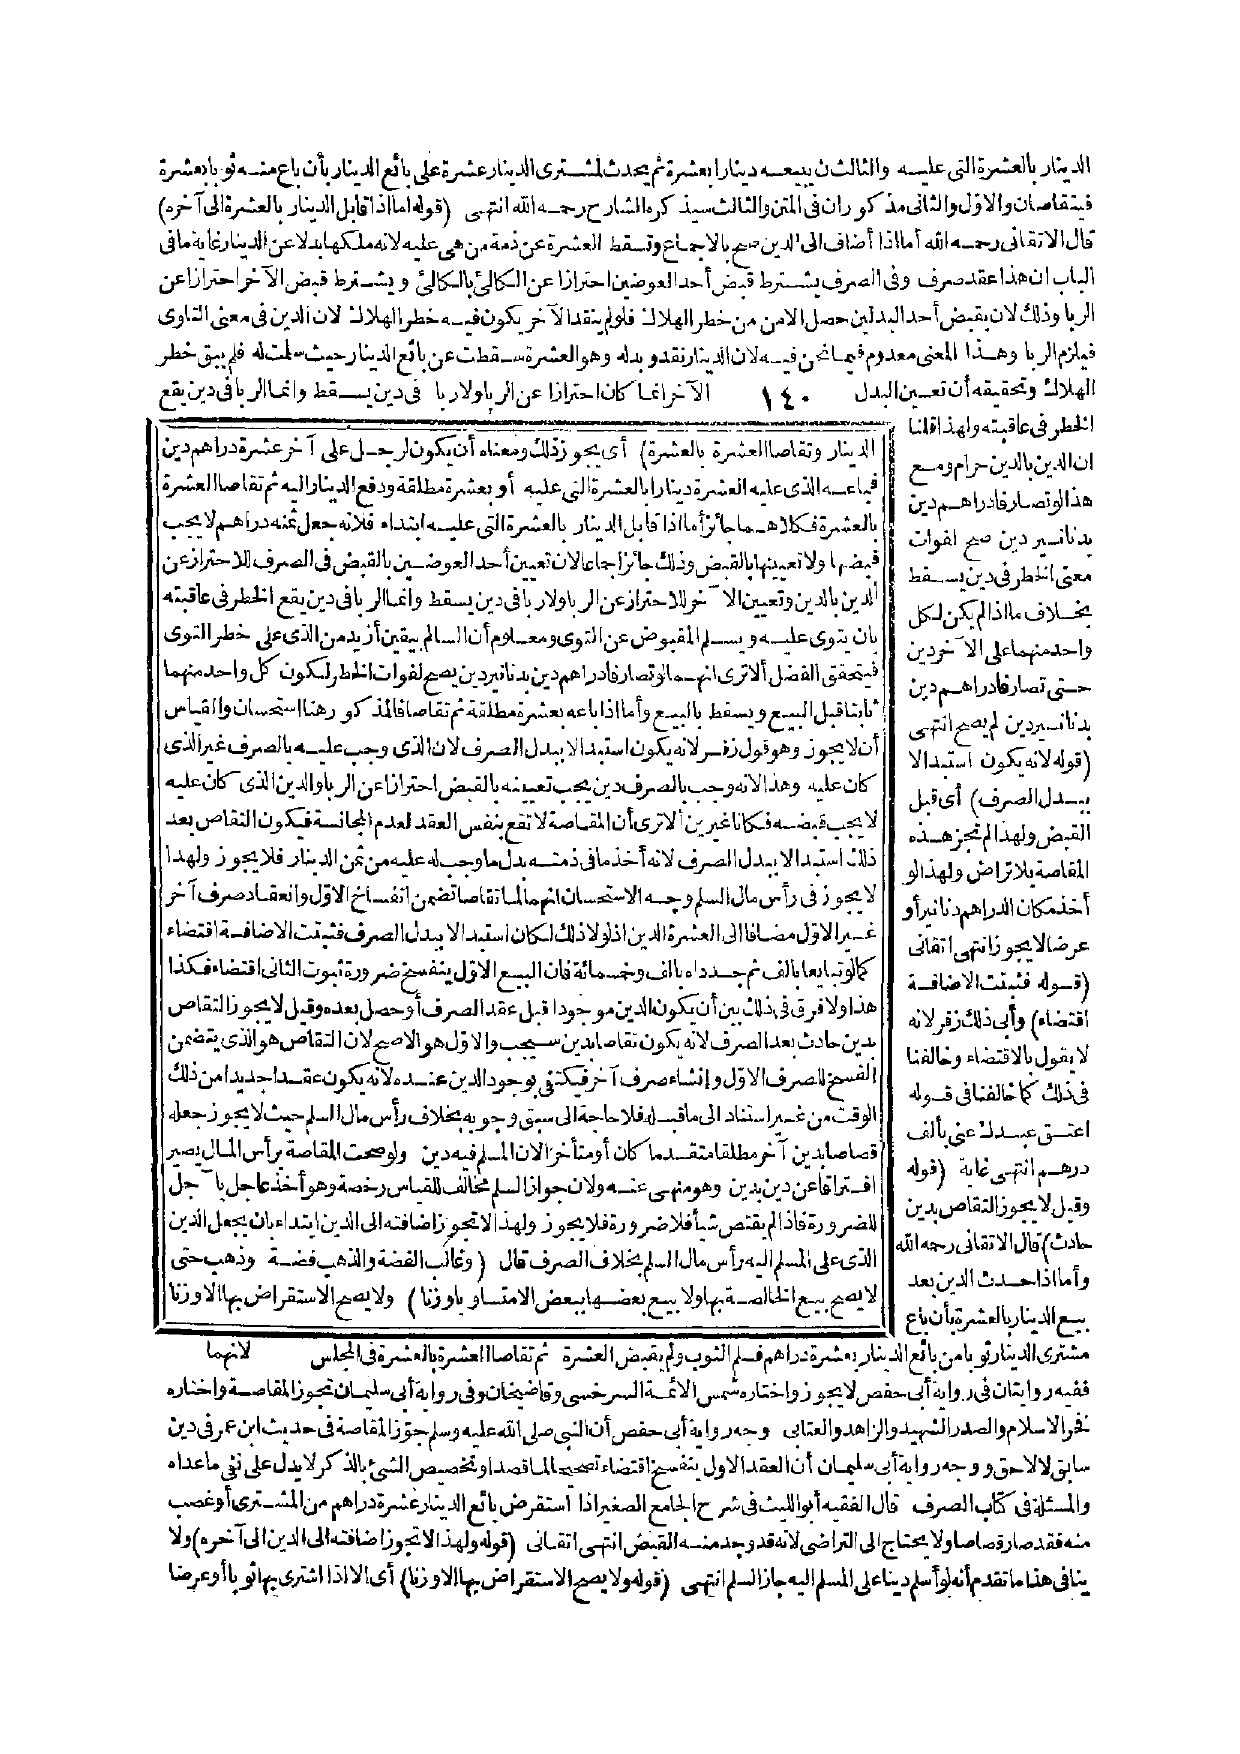 الدينار بالعشرة التى عليه والثالث ن يبيعه دينارا بعشرة ثم يحدث لمشترى الدينار عشرة على بائع الدينار بأن باع منه ثوبا بعشرة
فيتقاصان والاول والثانى مذكوران فى المتن والثالث سيذكره الشارح رحمه الله انتهى (قوله اما اذا قابل الدينار بالعشرة الى آخره)
قال الاتقانى رحمه الله أما اذا أضاف الى الدين صح بالاجماع وتسقط العشرة عن ذمة من هى عليه لانه ملكها بدلا عن الدينار غاية ما فى
الباب ان هذا عقد صرف وفى الصرف يشترط قبض أحد العوضين احترازا عن الكالئ بالكالئ ويشترط قبض الآخر احترازا عن
الربا وذلك لان بقبض أحد البدلين حصل الامن من خطر الهلاك فلو لم ينقد الآخر يكون فيه خطر الهلاك لان الدين فى معنى التاوى
فيلزم الربا وهذا المعنى معدوم فيما نحن فيه لان الدينار نقد وبدله وهو العشرة سقطت عن بائع الدينار حيث سلمت له فلم يبق خطر
الهلاك وتحقيقه أن تعيين البدل ١٤٠ الآخر انما كان احترازا عن الربا ولا ربا فى دين يسقط وانما الربا فى دين يقع
الخطر فى عاقبته ولهذا قلنا
ان الدين بالدين حرام ومع
هذا لو تصارفا دراهم دين
بدنانير دين صح لفوات
معنى الخطر فى دين يسقط
بخلاف ما اذا لم يكن لكل
واحد منهما على الآخر دين
حتى تصارفا دراهم دين
بدنانير دين لم يصح انتهى
(قوله لانه يكون استبدالا
ببدل الصرف) أى قبل
القبض ولهذا لم تجز هذه
المقاصة بلا تراض ولهذا لو
أخذ مكان الدراهم دنانير أو
عرضا لا يجوز انتهى اتقانى
(قوله فثبتت الاضافة
اقتضاء) وأبى ذلك زفر لانه
لا يقول بالاقتضاء وخالفنا
فى ذلك كما خالفنا فى قوله
اعتق عبدك عنى بألف
درهم انتهى غاية (قوله
وقيل لا يجوز التقاص بدين
حادث) قال الاتقانى رحمه الله
وأما اذا حدث الدين بعد
بيع الدينار بالعشرة بأن باع
الدينار وتقاصا العشرة بالعشرة) أى يجوز ذلك ومعناه أن يكون لرجل على آخر عشرة دراهم دين
فباعه الذى عليه العشرة دينارا بالعشرة التى عليه أو بعشرة مطلقة ودفع الدينار اليه ثم تقاصا العشرة
بالعشرة فكلاهما جائز أما اذا قابل الدينار بالعشرة التى عليه ابتداء فلانه جعل ثمنه دراهم لا يجب
قبضها ولا تعيينها بالقبض وذلك جائز اجماعا لان تعيين أحد العوضين بالقبض فى الصرف للاحتراز عن
الدين بالدين وتعيين الآخر للاحتراز عن الربا ولا ربا فى دين يسقط وانما الربا فى دين يقع الخطر فى عاقبته
بان يتوى عليه ويسلم المقبوض عن التوى ومعلوم أن السالم بيقين أزيد من الذى على خطر التوى
فيتحقق الفضل ألا ترى انهما لو تصارفا دراهم دين بدنانير دين يصح لفوات الخطر لكون كل واحد منهما
ثابتا قبل البيع ويسقط بالبيع وأما اذا باعه بعشرة مطلقة ثم تقاصا فالمذكور هنا استحسان والقياس
أن لا يجوز وهو قول زفر لانه يكون استبدالا ببدل الصرف لان الذى وجب عليه بالصرف غير الذى
كان عليه وهذا لانه وجب بالصرف دين يجب تعيينه بالقبض احترازا عن الربا والدين الذى كان عليه
لا يجب قبضه فكانا غيرين ألا ترى أن المقاصة لا تقع بنفس العقد لعدم المجانسة فيكون التقاص بعد
ذلك استبدالا ببدل الصرف لانه أخذ ما فى ذمته بدل ما وجب له عليه من ثمن الدينار فلا يجوز ولهذا
لا يجوز فى رأس مال السلم وجه الاستحسان انهما لما تقاصا تضمن انفساخ الاول وانعقاد صرف آخر
غير الاول مضافا الى العشرة الدين اذ لولا ذلك لكان استبدالا ببدل الصرف فثبتت الاضافة اقتضاء
كما لو تبايعا بالف ثم جدداه بالف وخمسمائة فان البيع الاول ينفسخ ضرورة ثبوت الثانى اقتضاء فكذا
هذا ولا فرق فى ذلك بين أن يكون الدين موجودا قبل عقد الصرف أو حصل بعده وقيل لا يجوز التقاص
بدين حادث بعد الصرف لانه يكون تقاصا بدين سيجب والاول هو الاصح لان التقاص هو الذى يتضمن
الفسخ للصرف الاول وانشاء صرف آخر فيكتفى بوجود الدين عنده لانه يكون عقدا جديدا من ذلك
الوقت من غير استناد الى ما قبله فلا حاجة الى سبق وجوبه بخلاف رأس مال السلم حيث لا يجوز جعله
قصاصا بدين آخر مطلقا متقدما كان أو متأخرا لان المسلم فيه دين ولو صحت المقاصة برأس المال يصير
افتراقا عن دين بدين وهو منهى عنه ولان جواز السلم مخالف للقياس رخصة وهو أخذ عاجل بآجل
للضرورة فاذا لم يقتض شيأ فلا ضرورة فلا يجوز ولهذا لا تجوز اضافته الى الدين ابتداء بان يجعل الدين
الذى على المسلم اليه رأس مال السلم بخلاف الصرف قال (وغالب الفضة والذهب فضة وذهب حتى
لا يصح بيع الخالصة بها ولا بيع بعضها ببعض الا متساويا وزنا) ولا يصح الاستقراض بها الا وزنا
مشترى الدينار ثوبا من بائع الدينار بعشرة دراهم فسلم الثوب ولم يقبض العشرة ثم تقاصا العشرة بالعشرة فى المجلس لانهما
ففيه روايتان فى رواية أبى حفص لا يجوز واختاره شمس الأئمة السرخسى وقاضيخان وفى رواية أبى سليمان تجوز المقاصة واختاره
فخر الاسلام والصدر الشهيد والزاهد والعتابى وجه رواية أبى حفص أن النبى صلى الله عليه وسلم جوز المقاصة فى حديث ابن عمر فى دين
سابق لا لاحق ووجه رواية أبى سليمان أن العقد الاول ينفسخ اقتضاء تصحيحا لما قصدا وتخصيص الشئ بالذكر لا يدل على نفى ما عداه
والمسئلة فى كتاب الصرف قال الفقيه أبو الليث فى شرح الجامع الصغير اذا استقرض بائع الدينار عشرة دراهم من المشترى أو غصب
منه فقد صار قصاصا ولا يحتاج الى التراضى لانه قد وجد منه القبض انتهى اتقانى (قوله ولهذا لا تجوز اضافته الى الدين الى آخره) ولا
ينافى هذا ما تقدم أنه لو أسلم دينا على المسلم اليه جاز السلم انتهى (قوله ولا يصح الاستقراض بها الا وزنا) أى الا اذا اشترى بها ثوبا أو عرضا